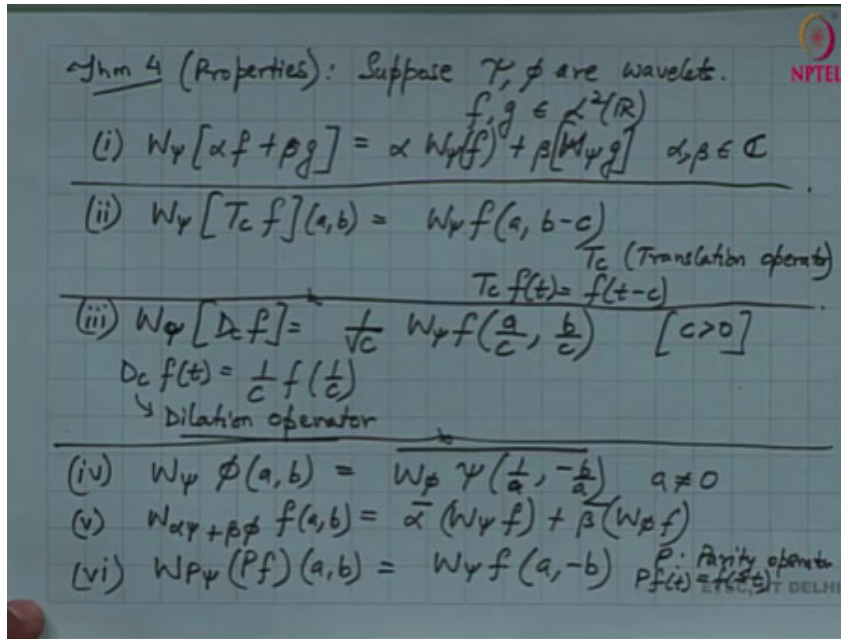 Thm 4 (Properties): Suppose ψ, φ are wavelets.
NPTEL
f, g ∈ L²(ℝ)
(i) Wψ[αf + βg] = α Wψ(f) + β[Wψ g] α, β ∈ ℂ
(ii) Wψ[Tc f](a,b) = Wψ f(a, b-c)
Tc (Translation operator)
Tc f(t) = f(t-c)
(iii) Wφ[Dc f] = 1/√c Wψ f(a/c, b/c) [c>0]
Dc f(t) = 1/c f(1/c)
↳ Dilation operator
(iv) Wψ φ(a,b) = \overline{Wφ ψ(1/a, -b/a)} a ≠ 0
(v) Wαψ+βφ f(a,b) = ᾱ (Wψ f) + β̄ (Wφ f)
(vi) WPψ (Pf)(a,b) = Wψ f(a,-b) P: Parity operator
Pf(t) = f(-t)
DELHI